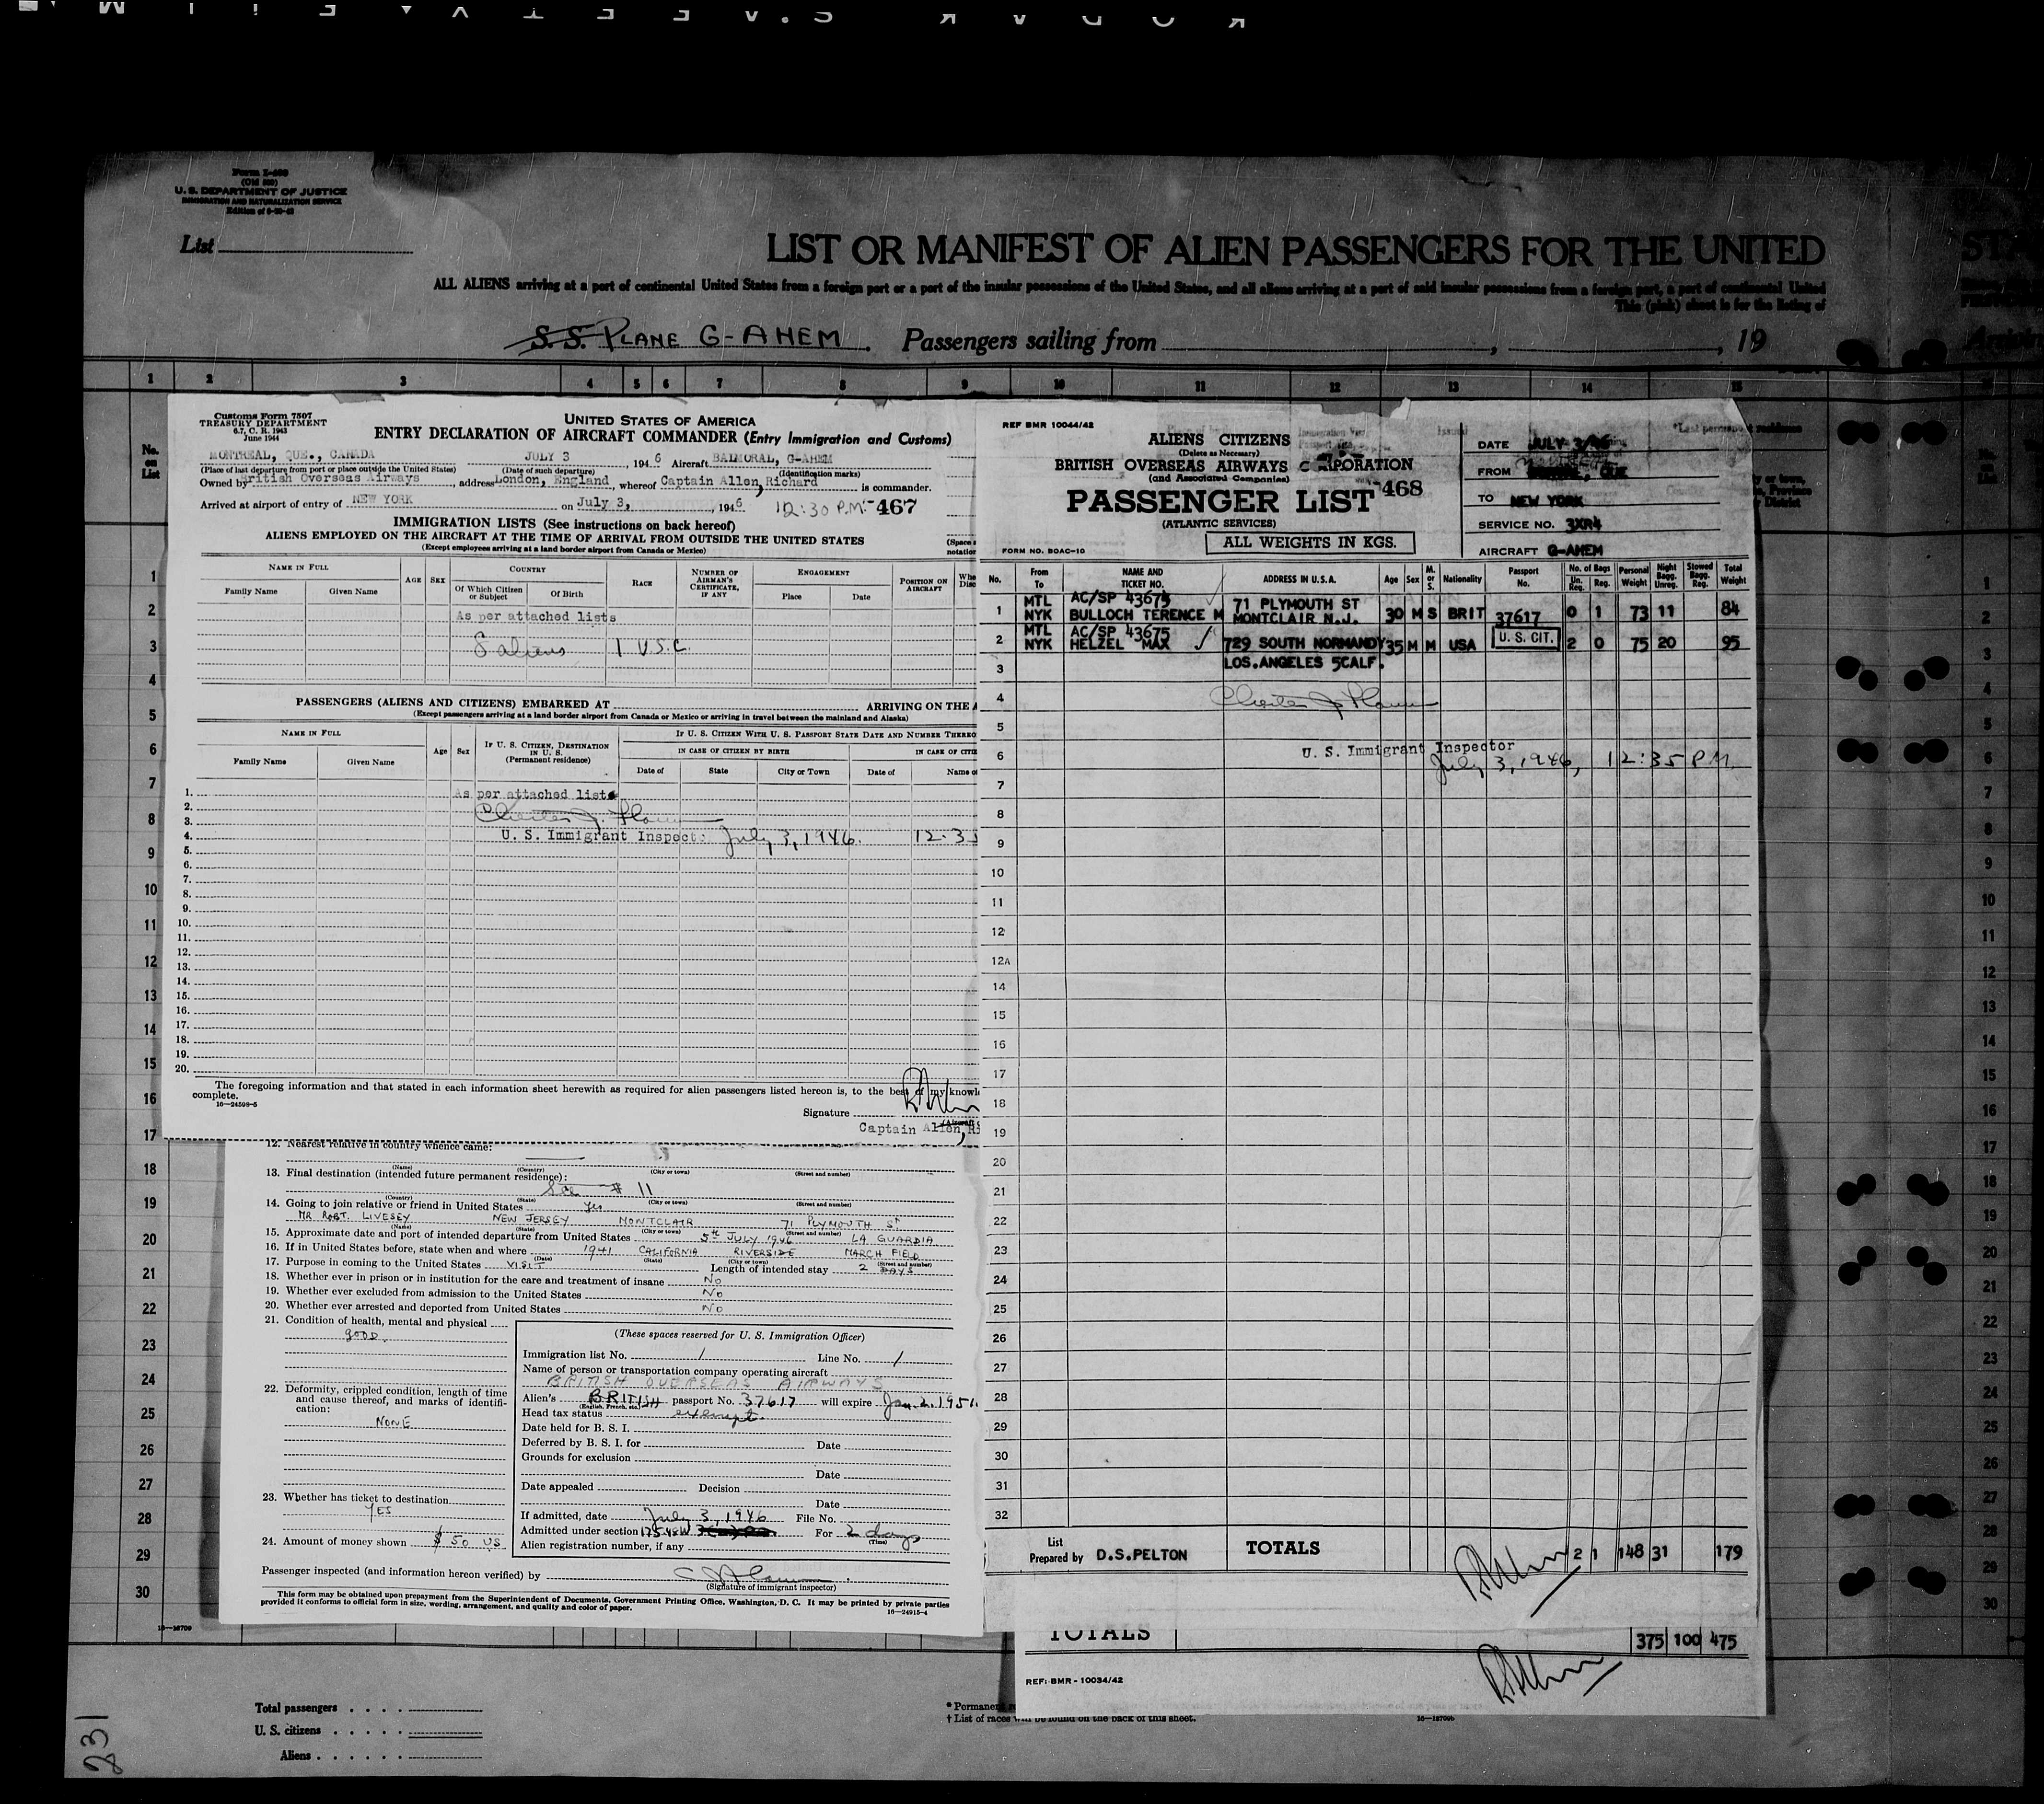 Form I-466
(Old 500)
U. S. DEPARTMENT OF JUSTICE
IMMIGRATION AND NATURALIZATION SERVICE
List
LIST OR MANIFEST OF ALIEN PASSENGERS FOR THE UNITED
ALL ALIENS arriving at a port of continental United States from a foreign port or a port of the insular possessions of the United States, and all aliens arriving at a port of said insular possessions from a foreign port, a port of continental United
This (pink) sheet is for the listing of
S.S. PLANE G-AHEM. Passengers sailing from , , 19
1 2 3 4 5 6 7 8 9 10 11 12 13 14 15
No. on List
Customs Form 7507
TREASURY DEPARTMENT
6.7, C. R. 1943
June 1944
UNITED STATES OF AMERICA
ENTRY DECLARATION OF AIRCRAFT COMMANDER (Entry Immigration and Customs)
MONTREAL, QUE., CANADA JULY 3, 1946 Aircraft BALMORAL, G-AHEM
(Place of last departure from port or place outside the United States) (Date of such departure) (Identification marks)
Owned by British Overseas Airways, address London, England, whereof Captain Allen, Richard is commander.
Arrived at airport of entry of NEW YORK on July 3, 1946 12:30 P.M. 467
IMMIGRATION LISTS (See instructions on back hereof)
ALIENS EMPLOYED ON THE AIRCRAFT AT THE TIME OF ARRIVAL FROM OUTSIDE THE UNITED STATES
(Except employees arriving at a land border airport from Canada or Mexico)
NAME IN FULL AGE SEX COUNTRY RACE NUMBER OF AIRMAN'S CERTIFICATE, IF ANY ENGAGEMENT POSITION ON AIRCRAFT
Family Name Given Name Of Which Citizen or Subject Of Birth Place Date
As per attached lists
8 aliens 1 U.S.C.
PASSENGERS (ALIENS AND CITIZENS) EMBARKED AT ARRIVING ON THE
(Except passengers arriving at a land border airport from Canada or Mexico or arriving in travel between the mainland and Alaska)
NAME IN FULL Age Sex IF U. S. CITIZEN, DESTINATION IN U. S. (Permanent residence) IF U. S. CITIZEN WITH U. S. PASSPORT STATE DATE AND NUMBER THEREO
IN CASE OF CITIZEN BY BIRTH IN CASE OF CITI
Family Name Given Name Date of State City or Town Date of Name o
1. As per attached lists
2.
3.
4. U. S. Immigrant Inspect: July 3, 1946. 12:3
5.
6.
7.
8.
9.
10.
11.
12.
13.
14.
15.
16.
17.
18.
19.
20.
The foregoing information and that stated in each information sheet herewith as required for alien passengers listed hereon is, to the best of my knowl
complete.
16-24598-5
Signature
Captain Allen, R
12. Nearest relative in country whence came:
(Name) (Country) (City or town) (Street and number)
13. Final destination (intended future permanent residence):
See # 11
(Country) (State) (City or town) (Street and number)
14. Going to join relative or friend in United States Yes
MR ROBT. LIVESEY NEW JERSEY MONTCLAIR 71 PLYMOUTH ST
(Name) (State) (City or town) (Street and number)
15. Approximate date and port of intended departure from United States 5th JULY 1946 LA GUARDIA
16. If in United States before, state when and where 1941 CALIFORNIA RIVERSIDE MARCH FIELD
(Date) (State) (City or town) (Street and number)
17. Purpose in coming to the United States VISIT Length of intended stay 2 DAYS
18. Whether ever in prison or in institution for the care and treatment of insane NO
19. Whether ever excluded from admission to the United States NO
20. Whether ever arrested and deported from United States NO
21. Condition of health, mental and physical
GOOD.
22. Deformity, crippled condition, length of time and cause thereof, and marks of identification:
NONE
23. Whether has ticket to destination
YES
24. Amount of money shown $50 US
(These spaces reserved for U. S. Immigration Officer)
Immigration list No. 1 Line No. 1
Name of person or transportation company operating aircraft
BRITISH OVERSEAS AIRWAYS
Alien's BRITISH passport No. 37617 will expire Jan. 2, 1951.
(English, French, etc.)
Head tax status exempt.
Date held for B. S. I.
Deferred by B. S. I. for Date
Grounds for exclusion
Date
Date appealed Decision
Date
If admitted, date July 3, 1946 File No.
Admitted under section For 2 days
(Time)
Alien registration number, if any
Passenger inspected (and information hereon verified) by
(Signature of immigrant inspector)
This form may be obtained upon prepayment from the Superintendent of Documents, Government Printing Office, Washington, D. C. It may be printed by private parties
provided it conforms to official form in size, wording, arrangement, and quality and color of paper.
16-24915-4
REF BMR 10044/42
ALIENS CITIZENS
(Delete as Necessary)
BRITISH OVERSEAS AIRWAYS CORPORATION
(and Associated Companies)
PASSENGER LIST 468
(ATLANTIC SERVICES)
ALL WEIGHTS IN KGS.
FORM NO. BOAC-10
DATE JULY 3/46
FROM MONTREAL, QUE
TO NEW YORK
SERVICE NO. 3XR4
AIRCRAFT G-AHEM
No. From To NAME AND TICKET NO. ADDRESS IN U.S.A. Age Sex M. or S. Nationality Passport No. No. of Bags Un. Reg. Reg. Personal Weight Night Bagg. Unreg. Stowed Bagg. Reg. Total Weight
1 MTL NYK AC/SP 43674 BULLOCH TERENCE M 71 PLYMOUTH ST MONTCLAIR N.J. 30 M S BRIT 37617 0 1 73 11 84
2 MTL NYK AC/SP 43675 HELZEL MAX 729 SOUTH NORMANDY 35 M M USA U. S. CIT. 2 0 75 20 95
3 LOS.ANGELES 5CALF.
4
5
6 U. S. Immigrant Inspector
July 3, 1946, 12:35 P.M.
7
8
9
10
11
12
12A
14
15
16
17
18
19
20
21
22
23
24
25
26
27
28
29
30
31
32
List Prepared by D.S.PELTON TOTALS 2 1 148 31 179
TOTALS 375 100 475
REF: BMR - 10034/42
Total passengers
U. S. citizens
Aliens
* Permanent
† List of races will be found on the back of this sheet.
231